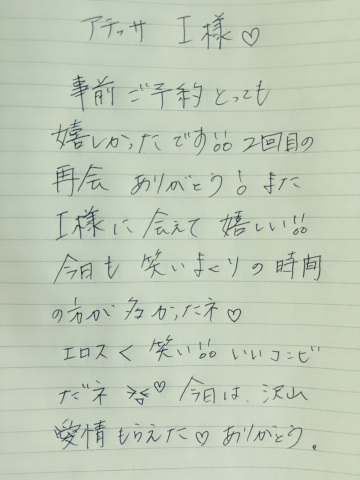 アテッサ I様♡
事前ご予約とっても
嬉しかったです!! 2回目の
再会 ありがとう! また
I様に会えて嬉しい!!
今日も笑いまくりの時間
の方が多かったネ♡
エロス<笑い!! いいコンビ
だネ ♡ 今日は、沢山
愛情もらえた♡ ありがとう。